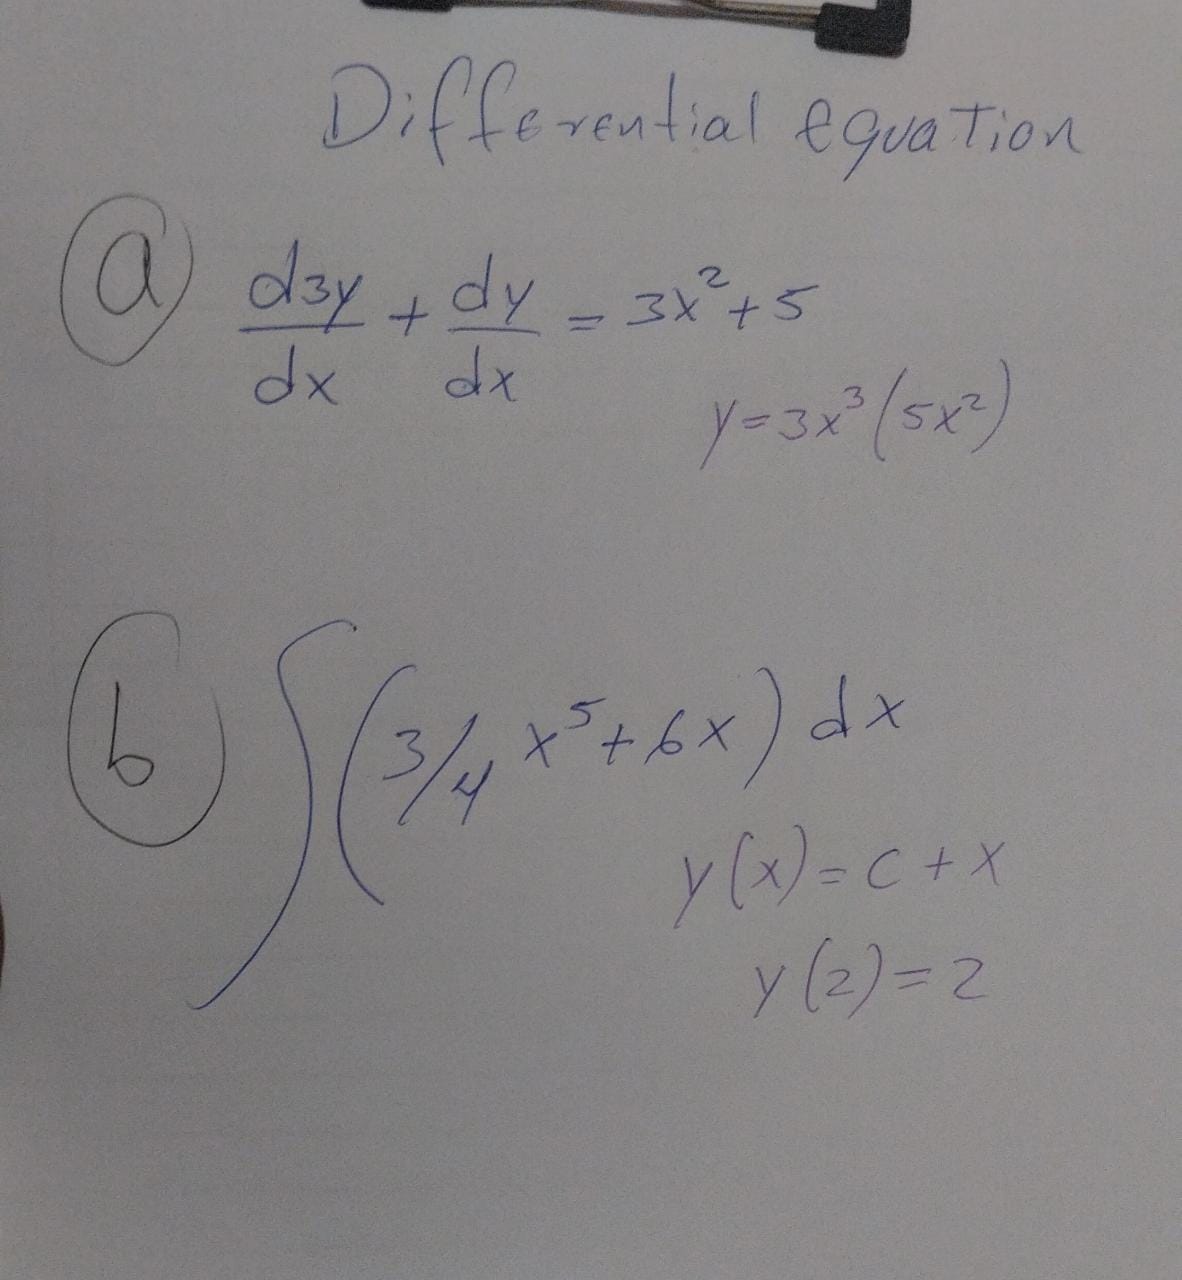 Differential equation
a d3y/dx + dy/dx = 3x² + 5
y = 3x³ (5x²)
b ∫ (3/4 x⁵ + 6x) dx
y(x) = c + x
y(2) = 2